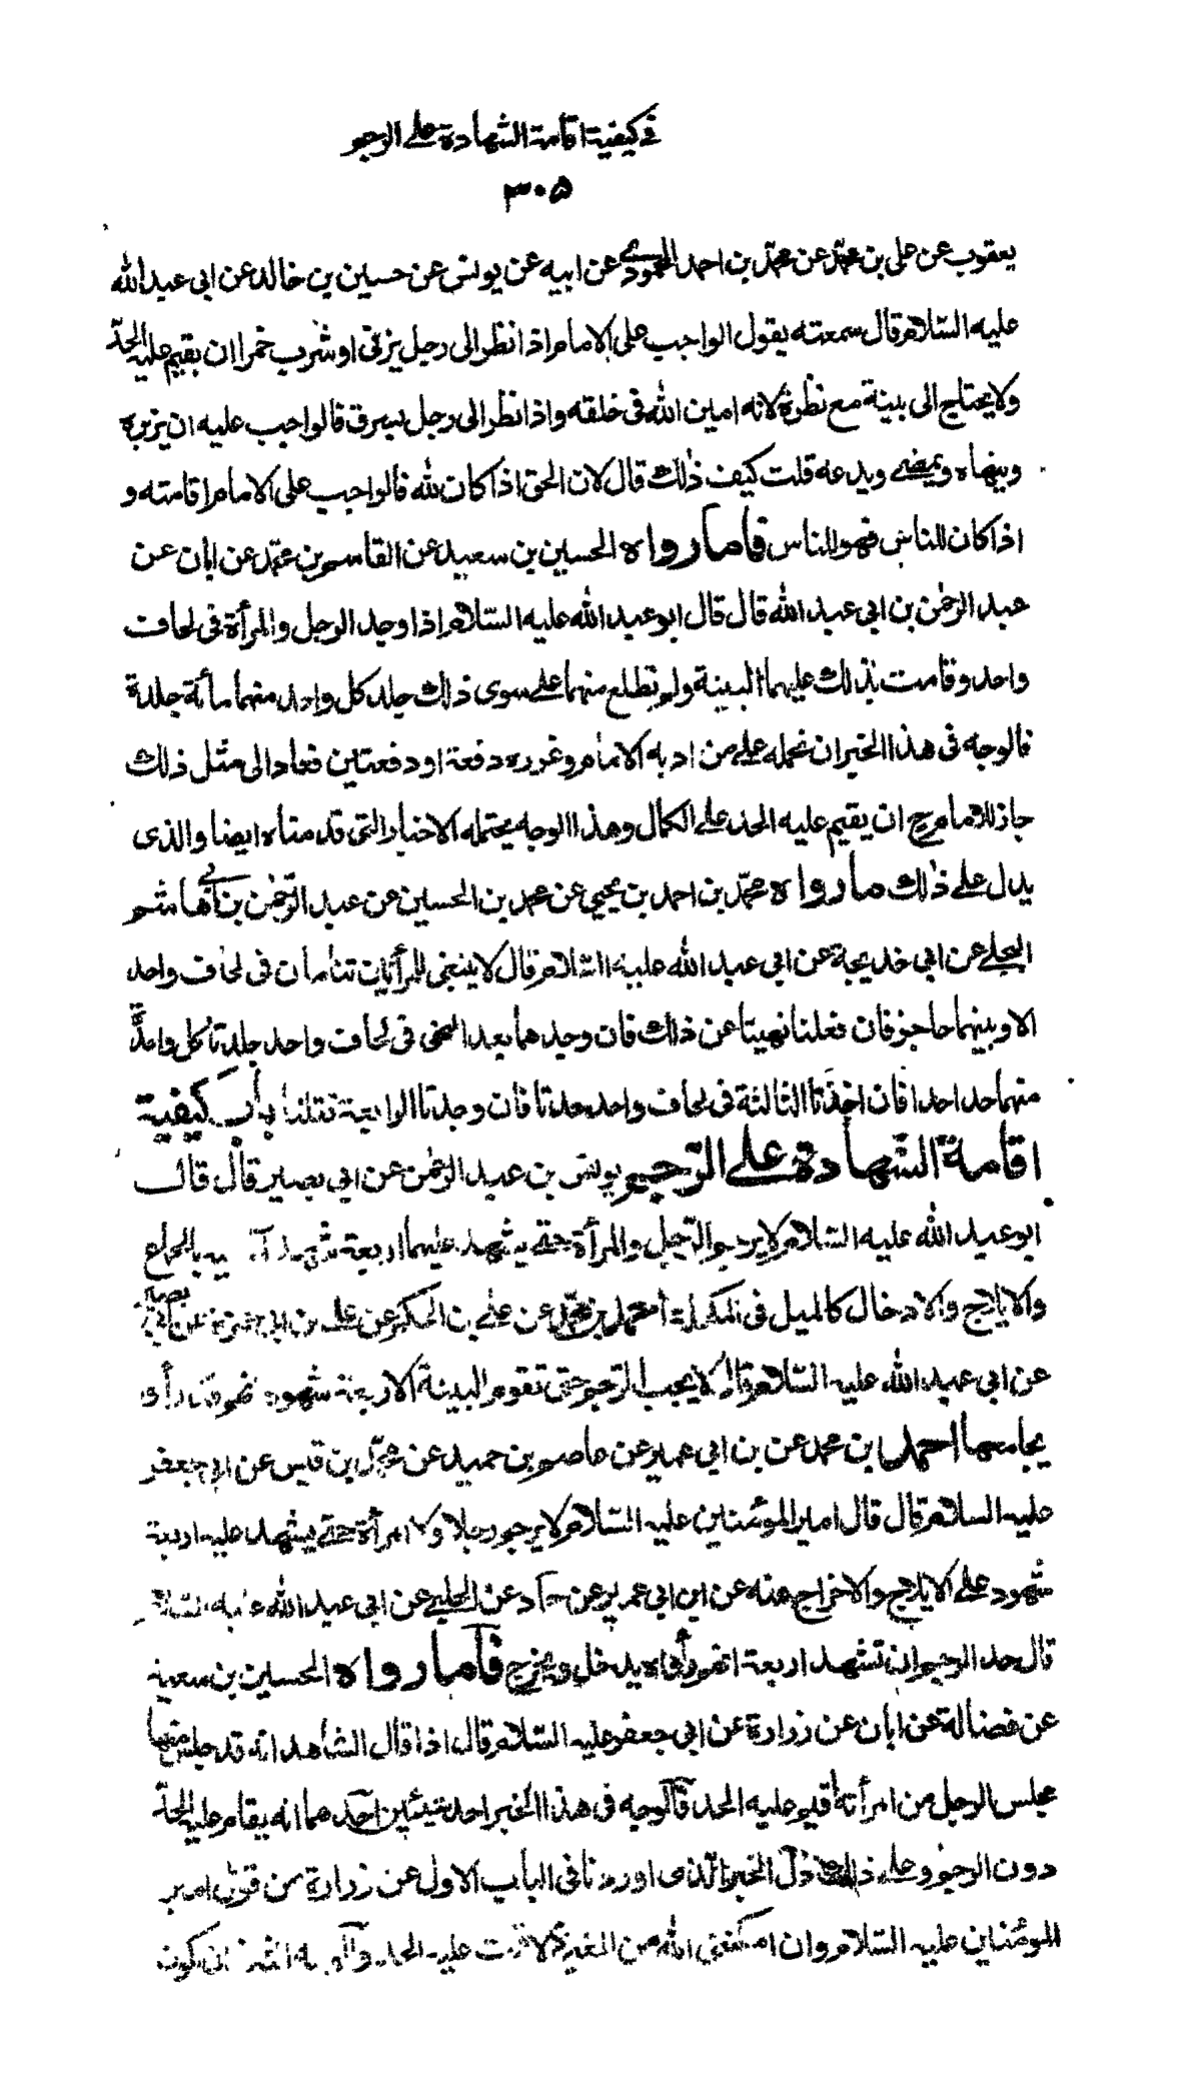 في كيفية اقامة الشهادة على الرجم
٣٠٥
يعقوب عن علي بن محمّد عن محمّد بن احمد المحمودي عن ابيه عن يونس عن حسين بن خالد عن ابي عبد الله
عليه السّلام قال سمعته يقول الواجب على الامام اذا نظر الى رجل يزني او شرب خمرا ان يقيم عليه الحدّ
ولا يحتاج الى بينة مع نظره لانه امين الله في خلقه واذا نظر الى رجل يسرق فالواجب عليه ان يزبره
وينهاه ويمضي ويدعه قلت كيف ذلك قال لان الحق اذا كان لله فالواجب على الامام اقامته و
اذا كان للناس فهو للناس فاما رواه الحسين بن سعيد عن القاسم بن محمّد عن ابان عن
عبد الرحمٰن بن ابي عبد الله قال قال ابو عبد الله عليه السّلام اذا وجد الرجل والمرأة في لحاف
واحد وقامت بذلك عليهما البينة ولم تطلع منهما على سوى ذلك جلد كل واحد منهما مائة جلدة
فالوجه في هذا الخبر ان نحمله على من ادبه الامام وعزره دفعة او دفعتين فعاد الى مثل ذلك
جاز للامام ح ان يقيم عليه الحد على الكمال وهذا الوجه يحتمله الاخبار التي قدمناه ايضا والذى
يدل على ذلك ما رواه محمّد بن احمد بن يحيى عن محمد بن الحسين عن عبد الرّحمٰن بن ابي هاشم
البجلي عن ابي خديجة عن ابي عبد الله عليه السّلام قال لا ينبغي لامرأتين تنامان في لحاف واحد
الا وبينهما حاجز فان فعلتا نهيتا عن ذلك فان وجدهما بعد النهى في لحاف واحد جلدتا كل واحدة
منهما حدا حدا فان اخذتا الثالثة في لحاف واحد حدتا فان وجدتا الرابعة قتلتا باب كيفية
اقامة الشّهادة على الرّجم يونس بن عبد الرحمٰن عن ابي بصير قال قال
ابو عبد الله عليه السّلام لا يرجم الرّجل والمرأة حتى يشهد عليهما اربعة شهداء بالجماع
والايلاج والادخال كالميل في المكحلة احمد بن محمّد عن علي بن الحكم عن علي بن ابي حمزة عن ابي بصير
عن ابي عبد الله عليه السّلام قال لا يجب الرّجم حتى تقوم البينة الاربعة شهود انهم قد رأوه
يجامعها احمد بن محمد عن بن ابي عمير عن عاصم بن حميد عن محمّد بن قيس عن ابي جعفر
عليه السلام قال قال امير المؤمنين عليه السّلام لا يرجم رجلا ولا امرأة حتى يشهد عليه اربعة
شهود على الايلاج والاخراج عنه عن ابن ابي عمير عن حماد عن الحلبي عن ابي عبد الله عليه السّلام
قال حد الرجم ان تشهد اربعة انهم رأوه يدخل ويخرج فاما رواه الحسين بن سعيد
عن فضالة عن ابان عن زرارة عن ابي جعفر عليه السّلام قال اذا قال الشاهد انه قد جلس منها
مجلس الرجل من امرأته اقيم عليه الحد فالوجه في هذا الخبر احد شيئين احدهما انه يقام عليه الحدّ
دون الرجم وعلى ذلك دلّ الخبر الّذى اوردنا في الباب الاول عن زرارة من قول امير
المؤمنين عليه السّلام وان امكنني الله من المغيرة لاقمت عليه الحد ان يكون